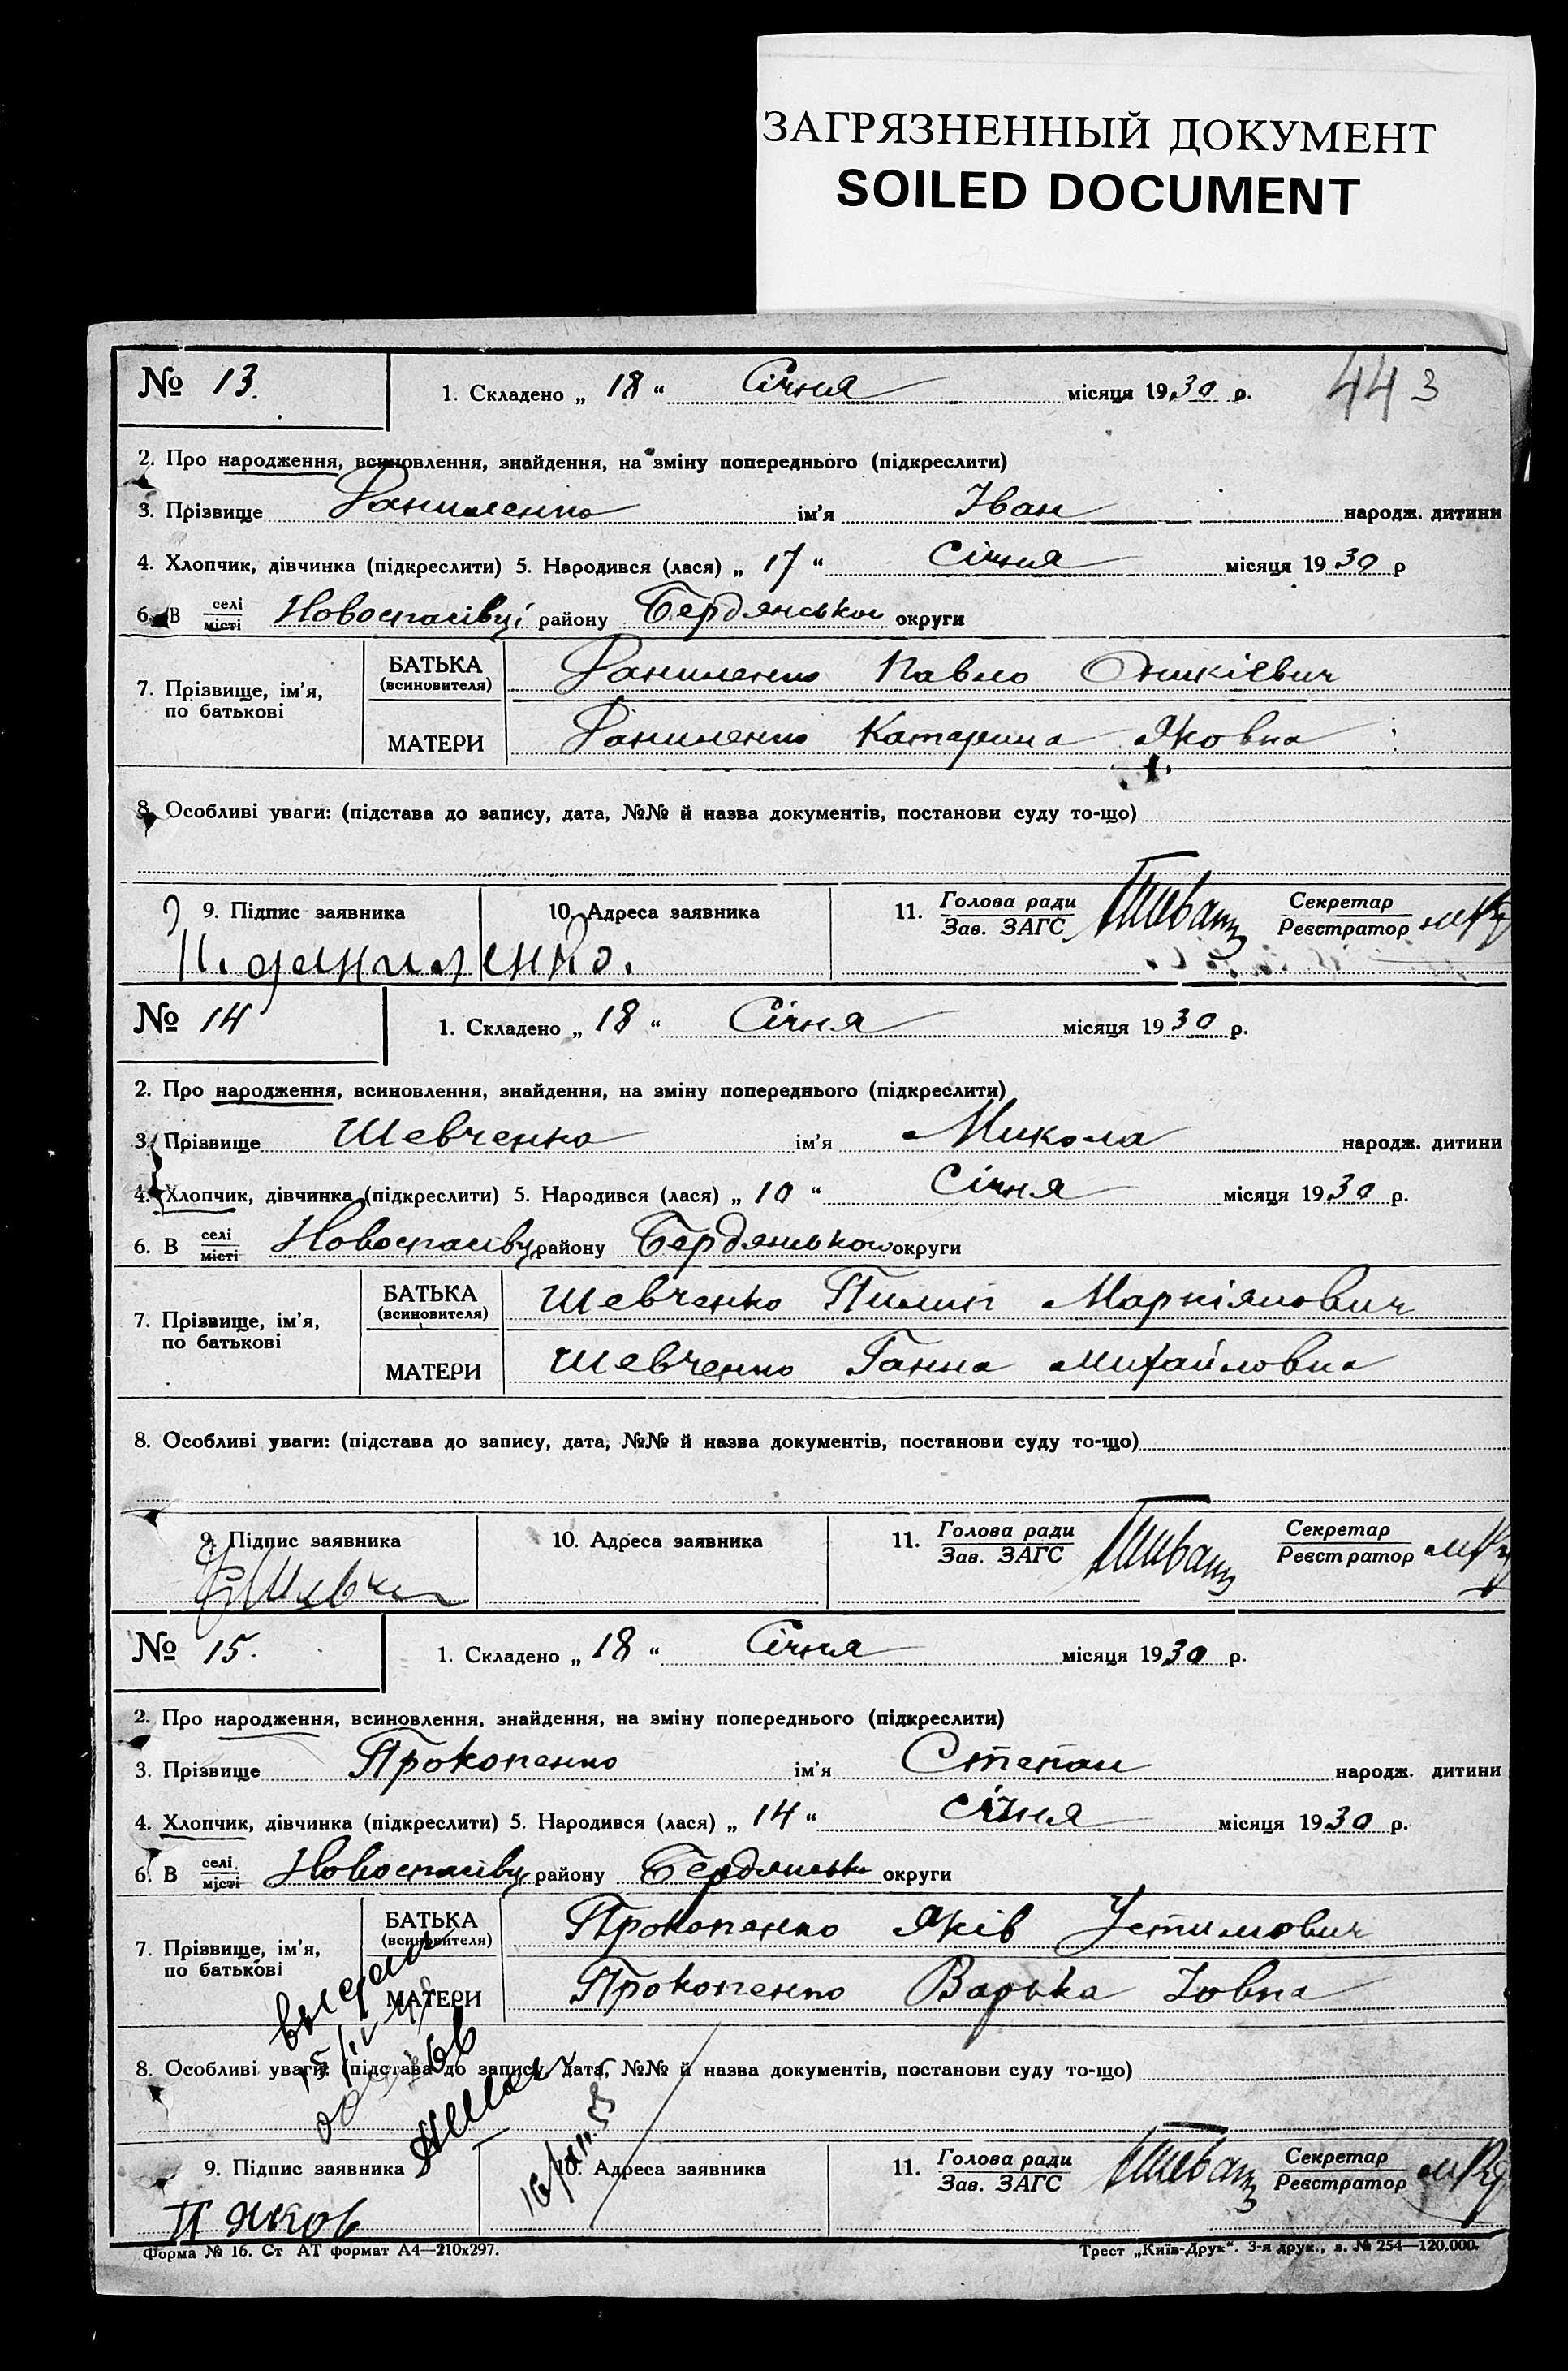 ЗАГРЯЗНЕННЫЙ ДОКУМЕНТ
SOILED DOCUMENT
№ 13. 1. Складено „ 18 “ Січня місяця 1930 р. 44 3
2. Про народження, всиновлення, знайдення, на зміну попереднього (підкреслити)
3. Прізвище Даниленко ім'я Іван народж. дитини
4. Хлопчик, дівчинка (підкреслити) 5. Народився (лася) „ 17 “ Січня місяця 1930 р
6. В селі Новоспасівці району Бердянської округи
місті
БАТЬКА Даниленко Павло Оникієвич
(всиновителя)
7. Прізвище, ім'я,
по батькові
МАТЕРИ Даниленко Катерина Яковна
8. Особливі уваги: (підстава до запису, дата, №№ й назва документів, постанови суду то-що)
9. Підпис заявника 10. Адреса заявника 11. Голова ради Секретар
Зав. ЗАГС Реєстратор
П. даниленко.
№ 14 1. Складено „ 18 “ Січня місяця 1930 р.
2. Про народження, всиновлення, знайдення, на зміну попереднього (підкреслити)
3. Прізвище Шевченко ім'я Микола народж. дитини
4. Хлопчик, дівчинка (підкреслити) 5. Народився (лася) „ 10 “ Січня місяця 1930 р.
6. В селі Новоспасівці району Бердянської округи
місті
БАТЬКА Шевченко Пилип Маркіянович
(всиновителя)
7. Прізвище, ім'я,
по батькові
МАТЕРИ Шевченко Ганна Михайловна
8. Особливі уваги: (підстава до запису, дата, №№ й назва документів, постанови суду то-що)
9. Підпис заявника 10. Адреса заявника 11. Голова ради Секретар
Зав. ЗАГС Реєстратор
№ 15. 1. Складено „ 18 “ Січня місяця 1930 р.
2. Про народження, всиновлення, знайдення, на зміну попереднього (підкреслити)
3. Прізвище Прокопенко ім'я Степан народж. дитини
4. Хлопчик, дівчинка (підкреслити) 5. Народився (лася) „ 14 “ січня місяця 1930 р.
6. В селі Новоспасівці району Бердянськ округи
місті
БАТЬКА Прокопенко Яків Устимович
(всиновителя)
7. Прізвище, ім'я,
по батькові
МАТЕРИ Прокопенко Варька Іовна
8. Особливі уваги: (підстава до запису, дата, №№ й назва документів, постанови суду то-що)
9. Підпис заявника 10. Адреса заявника 11. Голова ради Секретар
Зав. ЗАГС Реєстратор
П Яков
Форма № 16. Ст АТ формат А4—210х297. Трест „Київ-Друк“. 3-я друк., з. № 254—120.000.